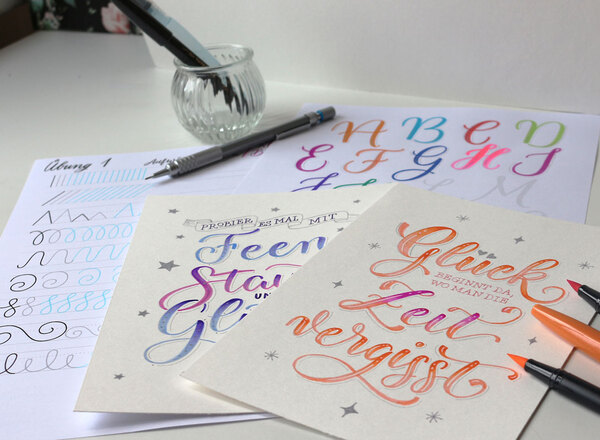 Übung 1
A B C D
E F G H I
M
PROBIER ES MAL MIT
Feen
Stau
UN
Gl
Glück
BEGINNT DA,
WO MAN DIE
Zeit
vergisst